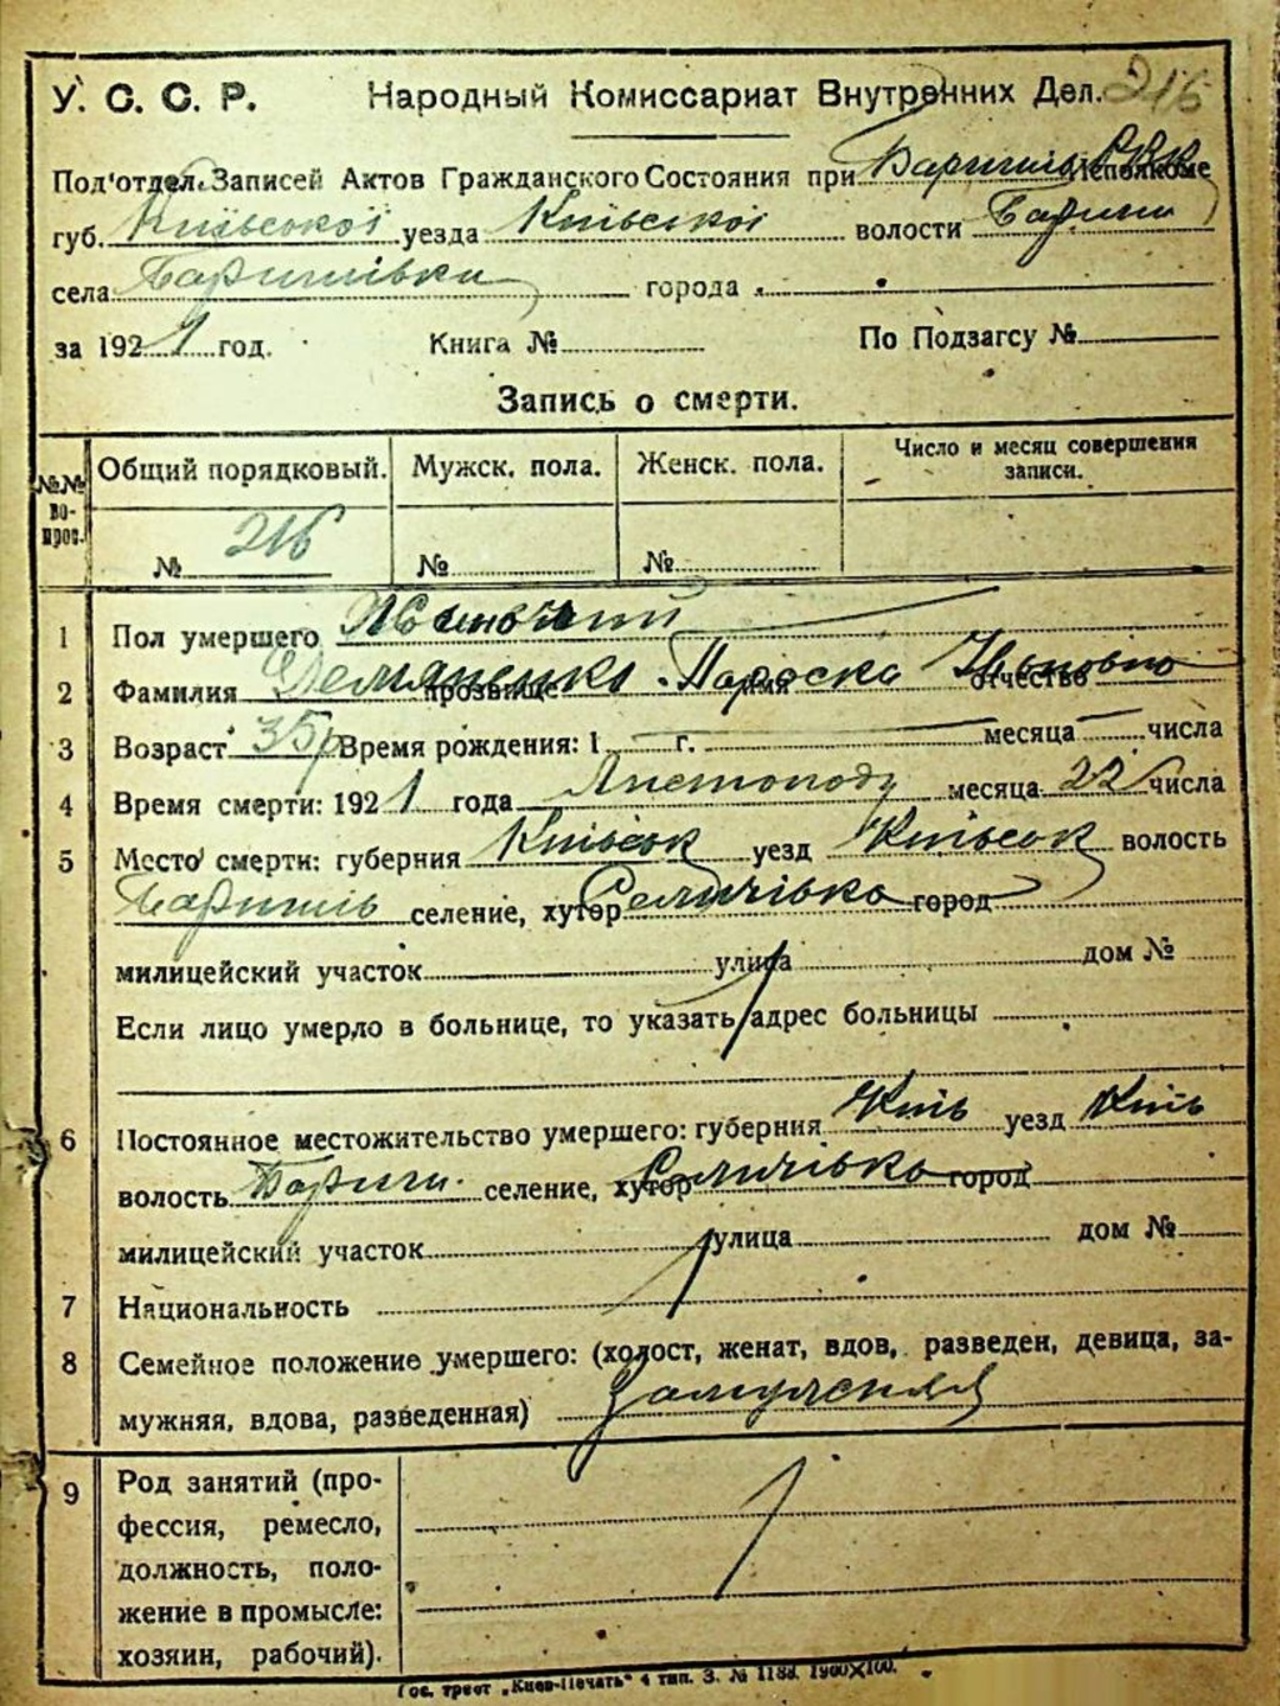 У. С. С. Р. Народный Комиссариат Внутренних Дел. 216
Под'отдел Записей Актов Гражданского Состояния при Баришів
губ. Київської уезда Київської волости Бариш
села Баришівки города
за 1921 год. Книга № По Подзагсу №
Запись о смерти.
№№ вопрос. Общий порядковый. Мужск. пола. Женск. пола. Число и месяц совершения записи.
№ 216 № №
1 Пол умершего Жіночий
2 Фамилия Демяненко прозвище Параска имя отчество
3 Возраст 35р Время рождения: 1 г. месяца числа
4 Время смерти: 1921 года Листопаду месяца 22 числа
5 Место смерти: губерния Київськ уезд Київськ волость
Баришів селение, хутор Селичівка город
милицейский участок улица дом №
Если лицо умерло в больнице, то указать адрес больницы
6 Постоянное местожительство умершего: губерния Київ уезд Київ
волость Бариш. селение, хутор Селичівка город
милицейский участок улица дом №
7 Национальность
8 Семейное положение умершего: (холост, женат, вдов, разведен, девица, за-
мужняя, вдова, разведенная) Замужняя
9 Род занятий (про-
фессия, ремесло,
должность, поло-
жение в промысле:
хозяин, рабочий).
Гос. трест „Киев-Печать“ 4 тип. З. № 1188. 1900×100.